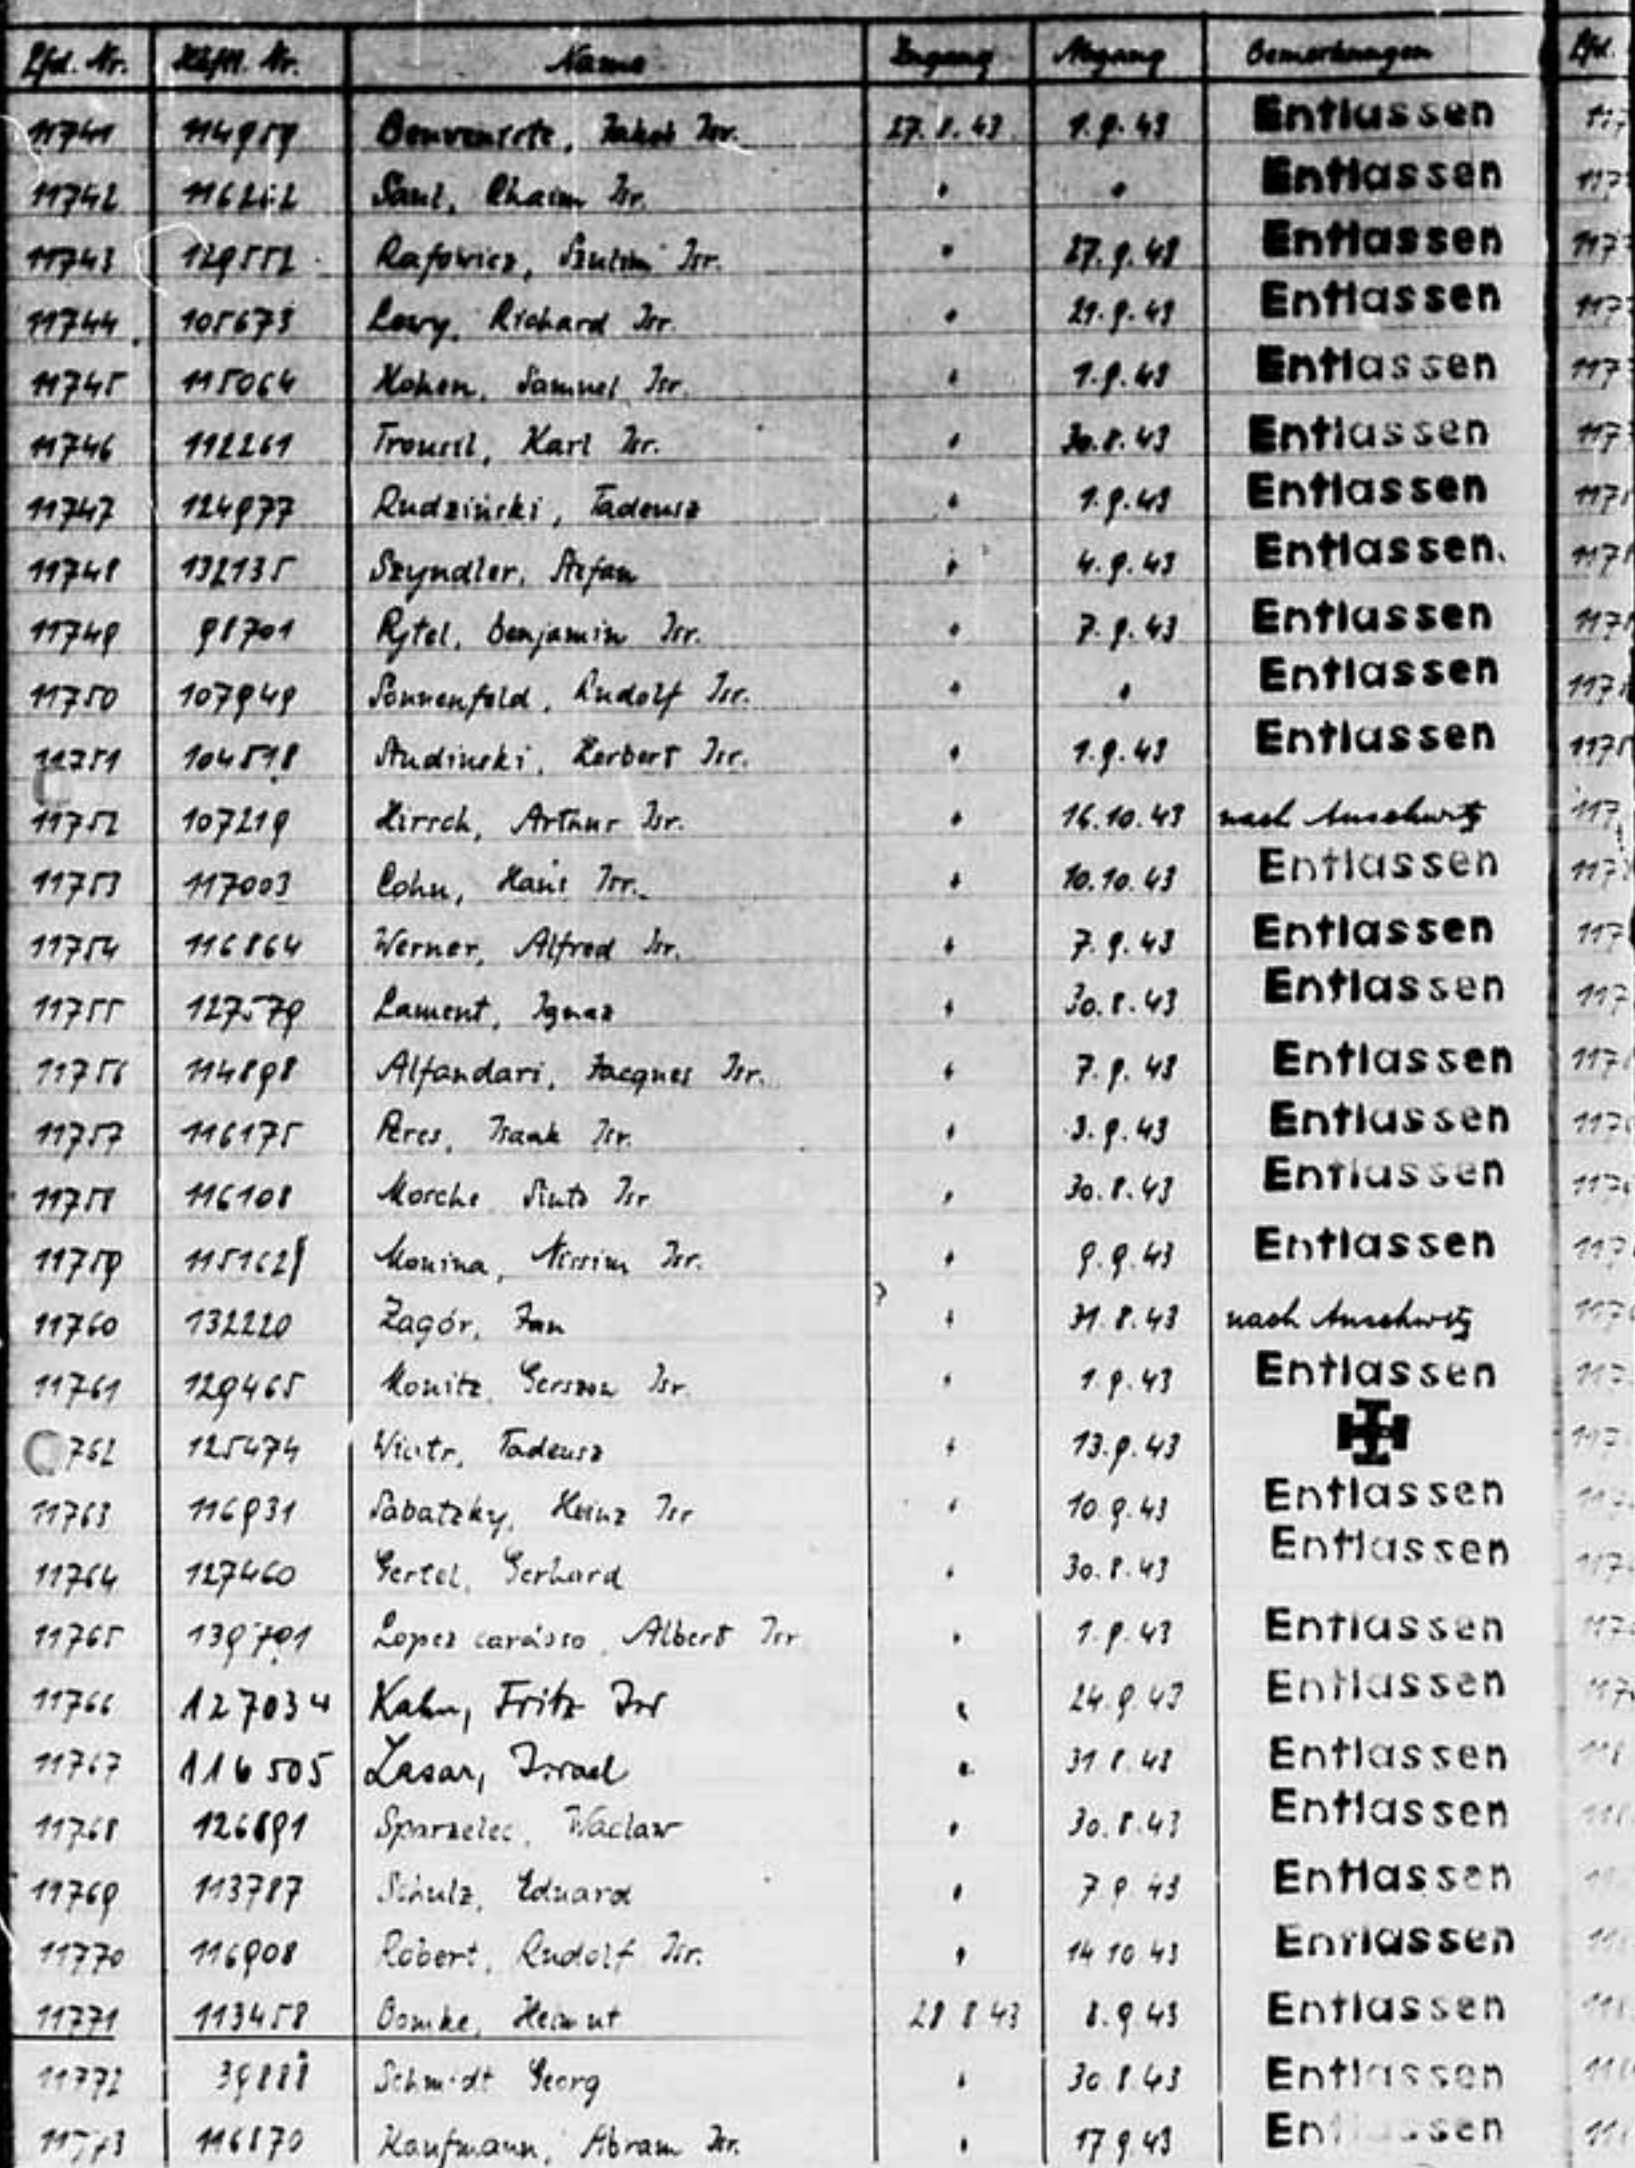 Lfd. Nr. Häftl. Nr. Name Zugang Abgang Bemerkungen Lfd.
11741 114959 Benveniste, Jakob Isr. 27.8.43 1.9.43 Entlassen
11742 Saul, Chaim Isr. " " Entlassen
11743 129552 Rafowicz, Isr. " 27.9.43 Entlassen
11744 105673 Lewy, Richard Isr. " 21.9.43 Entlassen
11745 115064 Kohen, Samuel Isr. " 1.9.43 Entlassen
11746 112261 Karl Isr. " 30.8.43 Entlassen
11747 124977 Rudziński, Tadeusz " 1.9.43 Entlassen
11748 132135 Szyndler, Stefan " 4.9.43 Entlassen.
11749 98701 Rytel, Benjamin Isr. " 7.9.43 Entlassen
11750 107949 Sonnenfeld, Rudolf Isr. " " Entlassen
11751 104518 Studinski, Herbert Isr. " 1.9.43 Entlassen
11752 107219 Hirsch, Arthur Isr. " 16.10.43 nach Auschwitz
11753 117003 Cohn, Hans Isr. " 10.10.43 Entlassen
11754 116864 Werner, Alfred Isr. " 7.9.43 Entlassen
11755 127579 Lament, Ignaz " 30.8.43 Entlassen
11756 114898 Alfandari, Jacques Isr. " 7.9.43 Entlassen
11757 116175 Peres, Isaak Isr. " 3.9.43 Entlassen
11758 116108 Morche Pinto Isr " 30.8.43 Entlassen
11759 Monina, Nissim Isr. " 9.9.43 Entlassen
11760 132220 Zagór, Jan " 31.8.43 nach Auschwitz
11761 129465 Monitz, Gerszon Isr. " 1.9.43 Entlassen
762 125474 Wiatr, Tadeusz " 13.9.43
11763 116931 Sabatzky, Heinz Isr " 10.9.43 Entlassen
11764 127460 Gertel, Gerhard " 30.8.43 Entlassen
11765 139701 Lopez cardsso, Albert Isr " 1.9.43 Entlassen
11766 127034 Kahn, Fritz Isr " 24.9.43 Entlassen
11767 116505 Lasar, Israel " 31.8.43 Entlassen
11768 126891 Sparzelec, Wacław " 30.8.43 Entlassen
11769 113787 Schulz, Eduard " 7 9 43 Entlassen
11770 116908 Robert, Rudolf Isr. " 14 10 43 Entlassen
11771 113458 Domke, Helmut 28 8 43 8.9.43 Entlassen
11772 39888 Schmidt Georg " 30 8 43 Entlassen
11773 116870 Kaufmann, Abram Isr. " 17 9 43 Entlassen